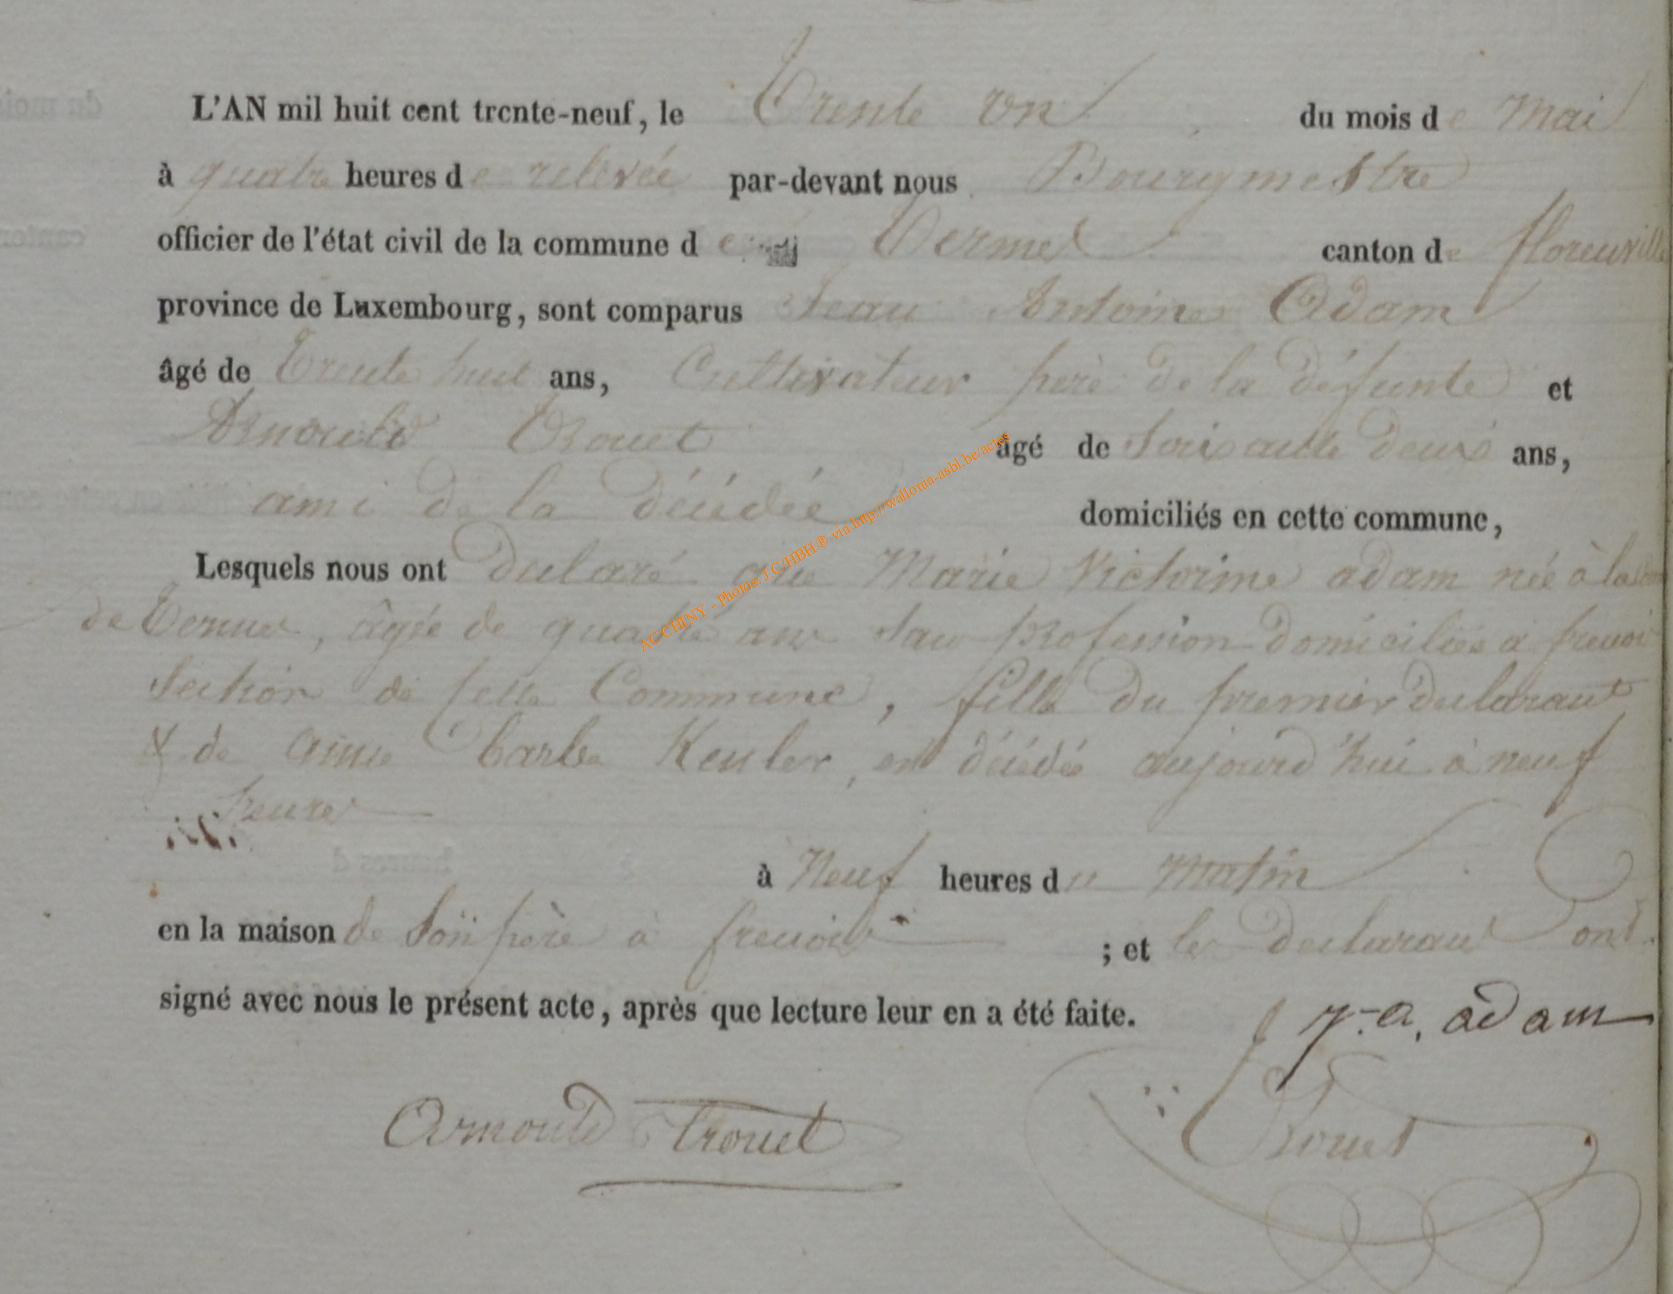 L'AN mil huit cent trente-neuf, le Trente un du mois de Mai
à quatre heures de relevée par-devant nous Bourgmestre
officier de l'état civil de la commune de Termes canton de florenville
province de Luxembourg, sont comparus Jean Antoine Adam
âgé de Trente huit ans, Cultivateur père de la défunte et
Arnould Trouet âgé de Soixante deux ans,
ami de la décédée domiciliés en cette commune,
Lesquels nous ont declaré que Marie Victorine adam née à la
de Termes, âgée de quatre ans sans profession domiciliée a frenois
Section de cette Commune, fille du premier declarant
& de anne barbe Kensler, est décédée aujourd'hui à neuf
heures
à Neuf heures du Matin
en la maison de Son père à frenois ; et les declarans ont
signé avec nous le présent acte, après que lecture leur en a été faite.
J. a. adam
Arnould Trouet
Trouet
ACCHINY - Photos J.C/HBH.® via http://wallonia-asbl.be/actes